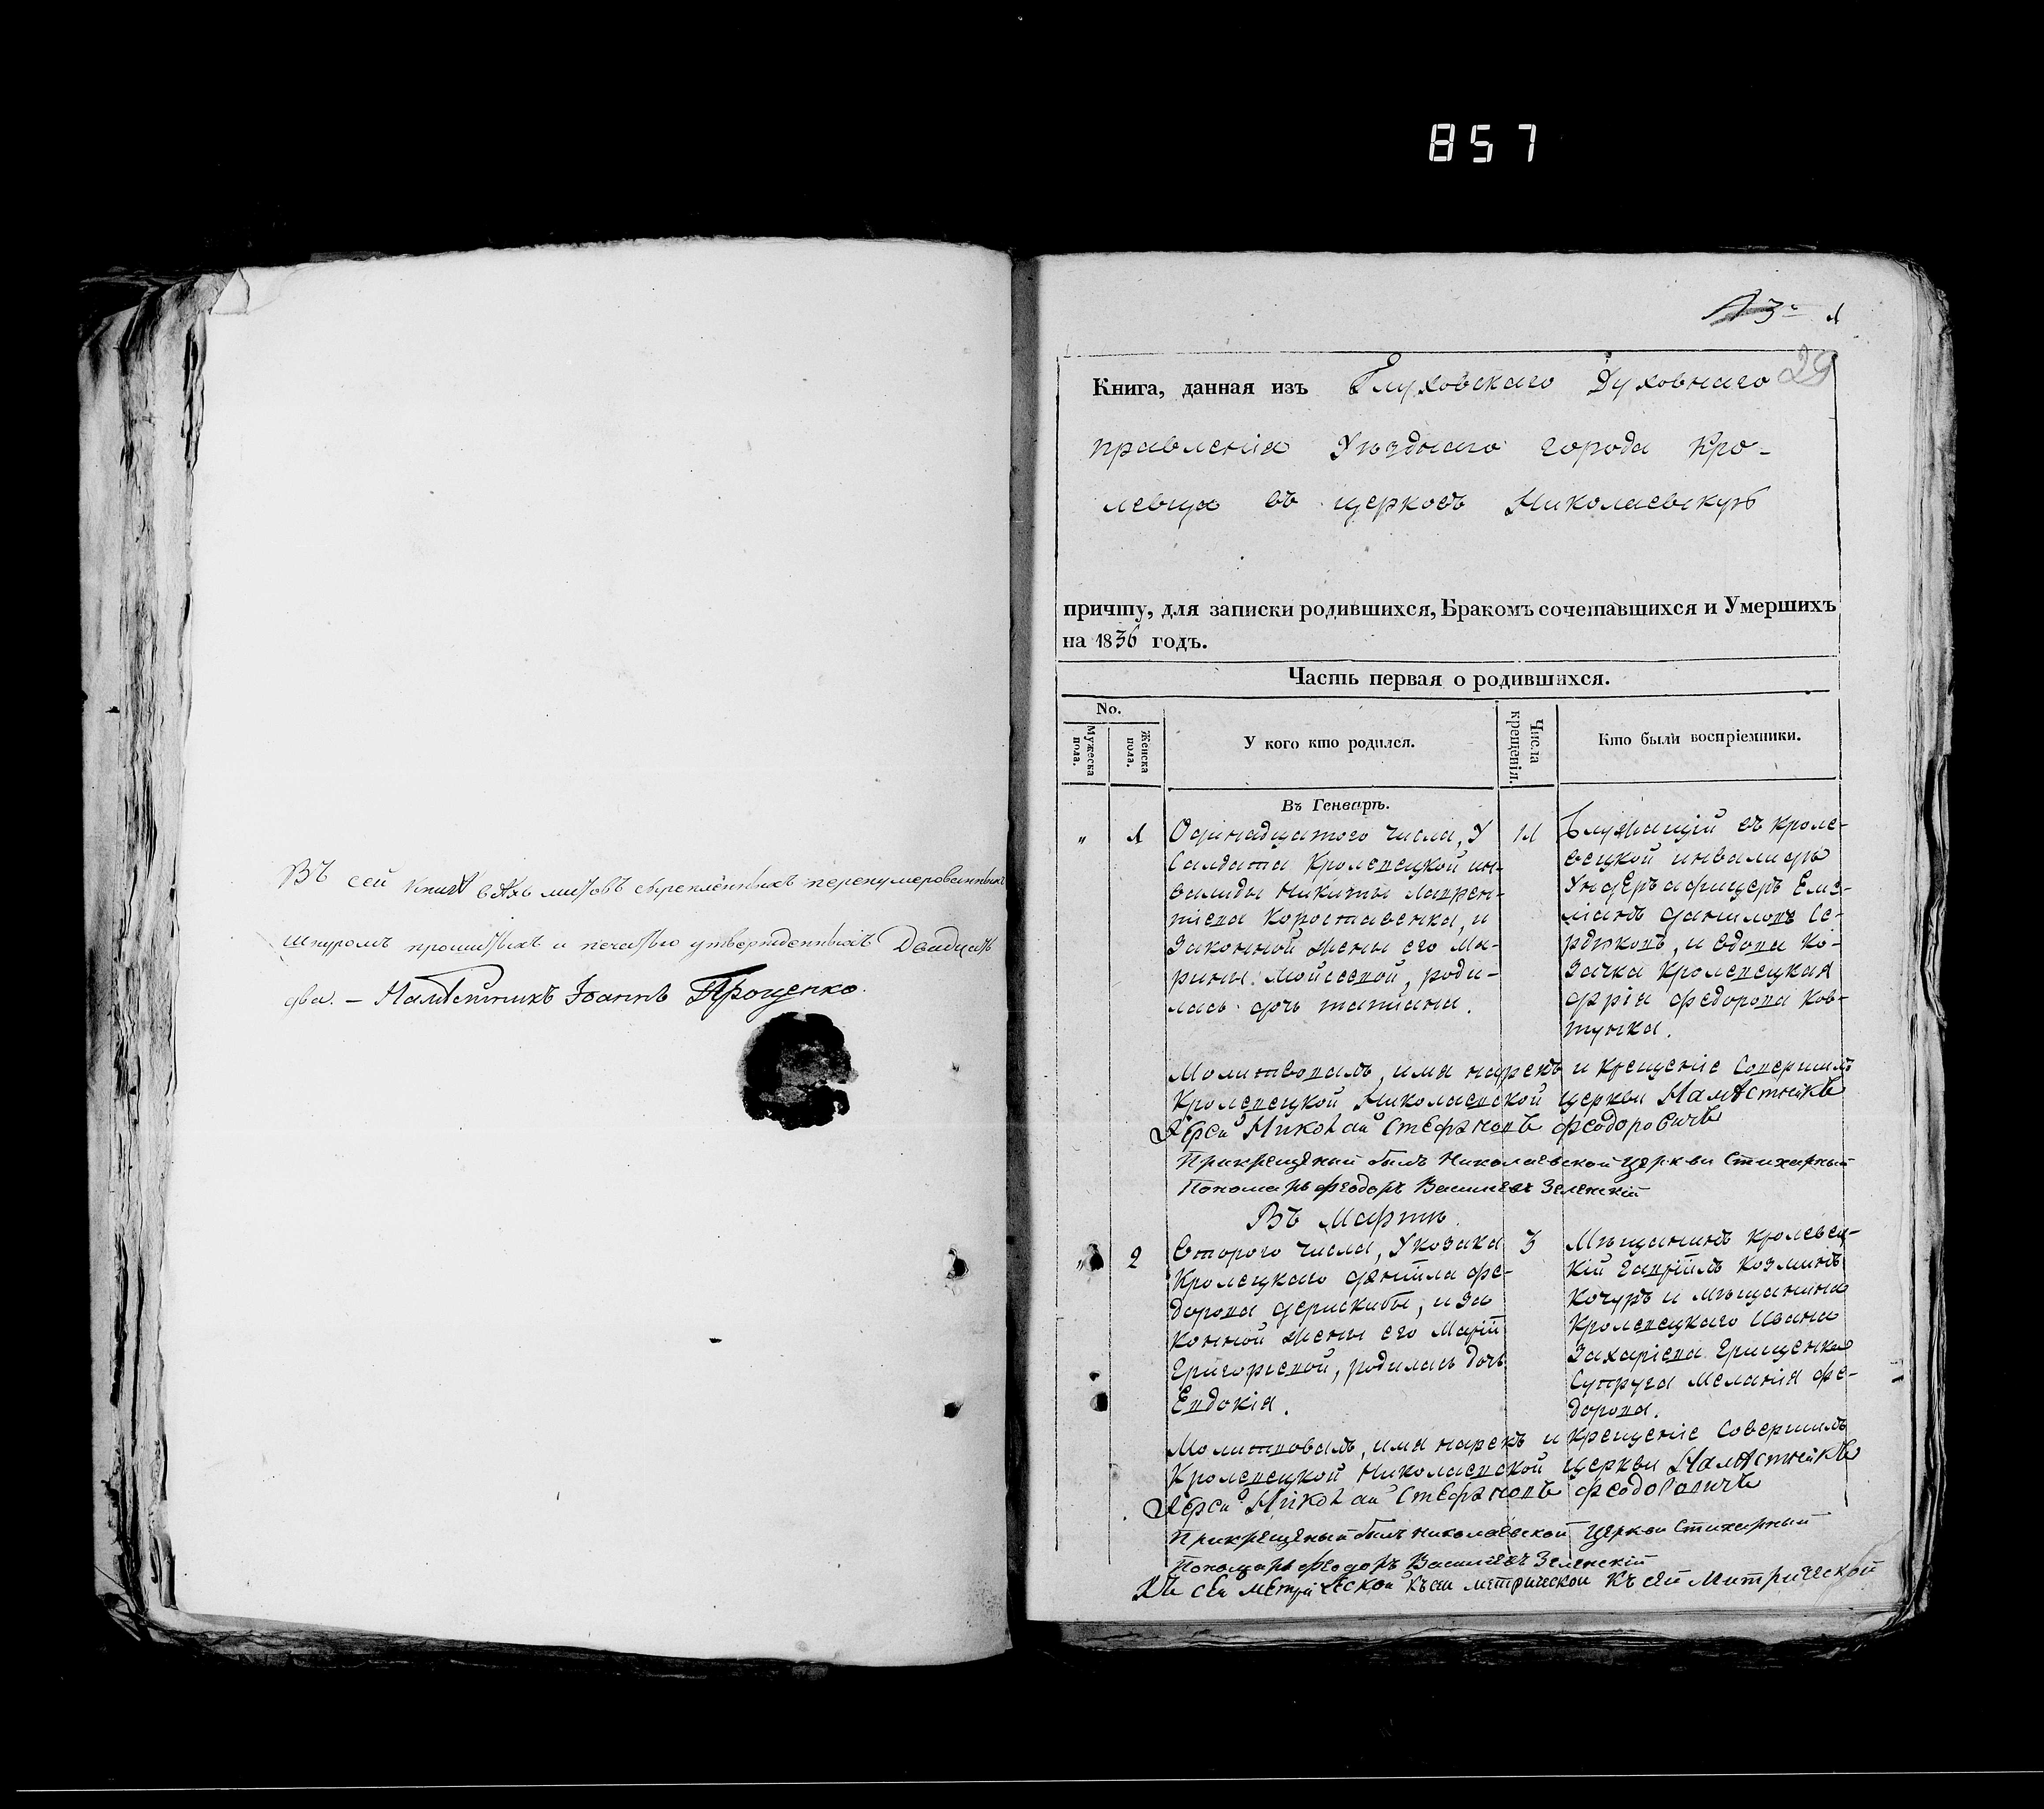 857
Въ сей книгѣ всѣхъ листовъ скрепленныхъ перенумерованныхъ
шнуромъ прошитыхъ и печатью утвержденныхъ Двадцать
два. – Намѣстникъ Іоаннъ Проценко.
1
29
Книга, данная изъ Глуховскаго Духовнаго
правленія Уѣзднаго города Кро-
левца въ церковь Николаевскую
причту, для записки родившихся, Бракомъ сочетавшихся и Умершихъ
на 1836 годъ.
Часть первая о родившихся.
No.
Мужеска пола.
Женска пола.
У кого кто родился.
Числа крещенія.
Кто были воспріемники.
Въ Генварѣ.
„ 1 Одинадцатого числа, У
Салдата Кролевецкой ин-
валиды Никиты Лаврен-
тіева Коростаченка, и
Законной жены его Ма-
рины Мойсеевой, роди-
лась дочь татіана.
11
Служащій въ Кроле-
вецкой инвалидѣ
Ундеръ афицеръ Еме-
ліанъ даниловъ Се-
рдюковъ, и вдова Ко-
зачка Кролевецкая
дарія федорова Ков-
тунка.
Молитвовалъ, имя нарекъ и крещеніе Совершилъ
Кролевецкой Николаевской церкви Намѣстникъ
Іерей Николай Стефановъ Феодоровичъ
При крещеній былъ Николаевской Церкви Стихарный
Пономарь Феодоръ Василіевъ Зеленскій
Въ Мартѣ
„ 2 Второго числа, У козака
Кролецкаго данійла фе-
дорова дерискибы, и за
конной жены его Марій
Григориевой, родилась дочь
Евдокія.
3
Мѣщанинъ кролевец-
кій гавріилъ козминъ
Кочуръ и мѣщанина
Кролевецкаго Ивана
Захаріева Грищенка
Супруга Меланія фе-
дорова.
Молитвовалъ, имя нарекъ и крещеніе Совершилъ
Кролевецкой Николаевской церкви Намѣстникъ
Іерей Николай Стефановъ Феодоровичъ
При крещеній былъ Николаевской Церкви Стихарный
Пономарь Феодоръ Василіевъ Зеленскій
Къ сей метрической Къ сей метрической Къ сей Митрической